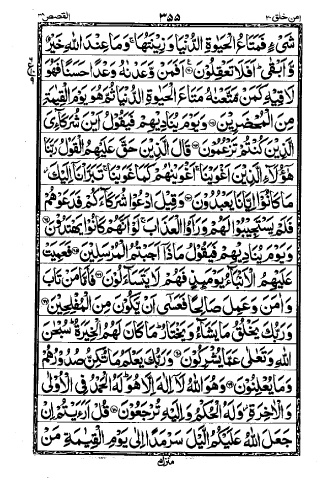 امن خلق ٢٠ ٣٥٥ القصص ٢٨
شَیْءٍ فَمَتَاعُ الْحَیٰوةِ الدُّنْیَا وَزِیْنَتُهَا ۚ وَمَا عِنْدَ اللّٰهِ خَیْرٌ
وَّاَبْقٰی ؕ اَفَلَا تَعْقِلُوْنَ۠ اَفَمَنْ وَّعَدْنٰهُ وَعْدًا حَسَنًا فَهُوَ
لَاقِیْهِ كَمَنْ مَّتَّعْنٰهُ مَتَاعَ الْحَیٰوةِ الدُّنْیَا ثُمَّ هُوَ یَوْمَ الْقِیٰمَةِ
مِنَ الْمُحْضَرِیْنَ وَیَوْمَ یُنَادِیْهِمْ فَیَقُوْلُ اَیْنَ شُرَكَآءِیَ
الَّذِیْنَ كُنْتُمْ تَزْعُمُوْنَ قَالَ الَّذِیْنَ حَقَّ عَلَیْهِمُ الْقَوْلُ رَبَّنَا
هٰۤؤُلَآءِ الَّذِیْنَ اَغْوَیْنَا ۚ اَغْوَیْنٰهُمْ كَمَا غَوَیْنَا ۚ تَبَرَّاْنَاۤ اِلَیْكَ ؗ
مَا كَانُوْۤا اِیَّانَا یَعْبُدُوْنَ وَقِیْلَ ادْعُوْا شُرَكَآءَكُمْ فَدَعَوْهُمْ
فَلَمْ یَسْتَجِیْبُوْا لَهُمْ وَرَاَوُا الْعَذَابَ ۚ لَوْ اَنَّهُمْ كَانُوْا یَهْتَدُوْنَ
وَیَوْمَ یُنَادِیْهِمْ فَیَقُوْلُ مَاذَاۤ اَجَبْتُمُ الْمُرْسَلِیْنَ فَعَمِیَتْ
عَلَیْهِمُ الْاَنْۢبَآءُ یَوْمَىِٕذٍ فَهُمْ لَا یَتَسَآءَلُوْنَ فَاَمَّا مَنْ تَابَ
وَاٰمَنَ وَعَمِلَ صَالِحًا فَعَسٰۤی اَنْ یَّكُوْنَ مِنَ الْمُفْلِحِیْنَ
وَرَبُّكَ یَخْلُقُ مَا یَشَآءُ وَیَخْتَارُ ؕ مَا كَانَ لَهُمُ الْخِیَرَةُ ؕ سُبْحٰنَ
اللّٰهِ وَتَعٰلٰی عَمَّا یُشْرِكُوْنَ وَرَبُّكَ یَعْلَمُ مَا تُكِنُّ صُدُوْرُهُمْ
وَمَا یُعْلِنُوْنَ وَهُوَ اللّٰهُ لَاۤ اِلٰهَ اِلَّا هُوَ ؕ لَهُ الْحَمْدُ فِی الْاُوْلٰی
وَالْاٰخِرَةِ ؗ وَلَهُ الْحُكْمُ وَاِلَیْهِ تُرْجَعُوْنَ قُلْ اَرَءَیْتُمْ اِنْ
جَعَلَ اللّٰهُ عَلَیْكُمُ الَّیْلَ سَرْمَدًا اِلٰی یَوْمِ الْقِیٰمَةِ مَنْ
منزل